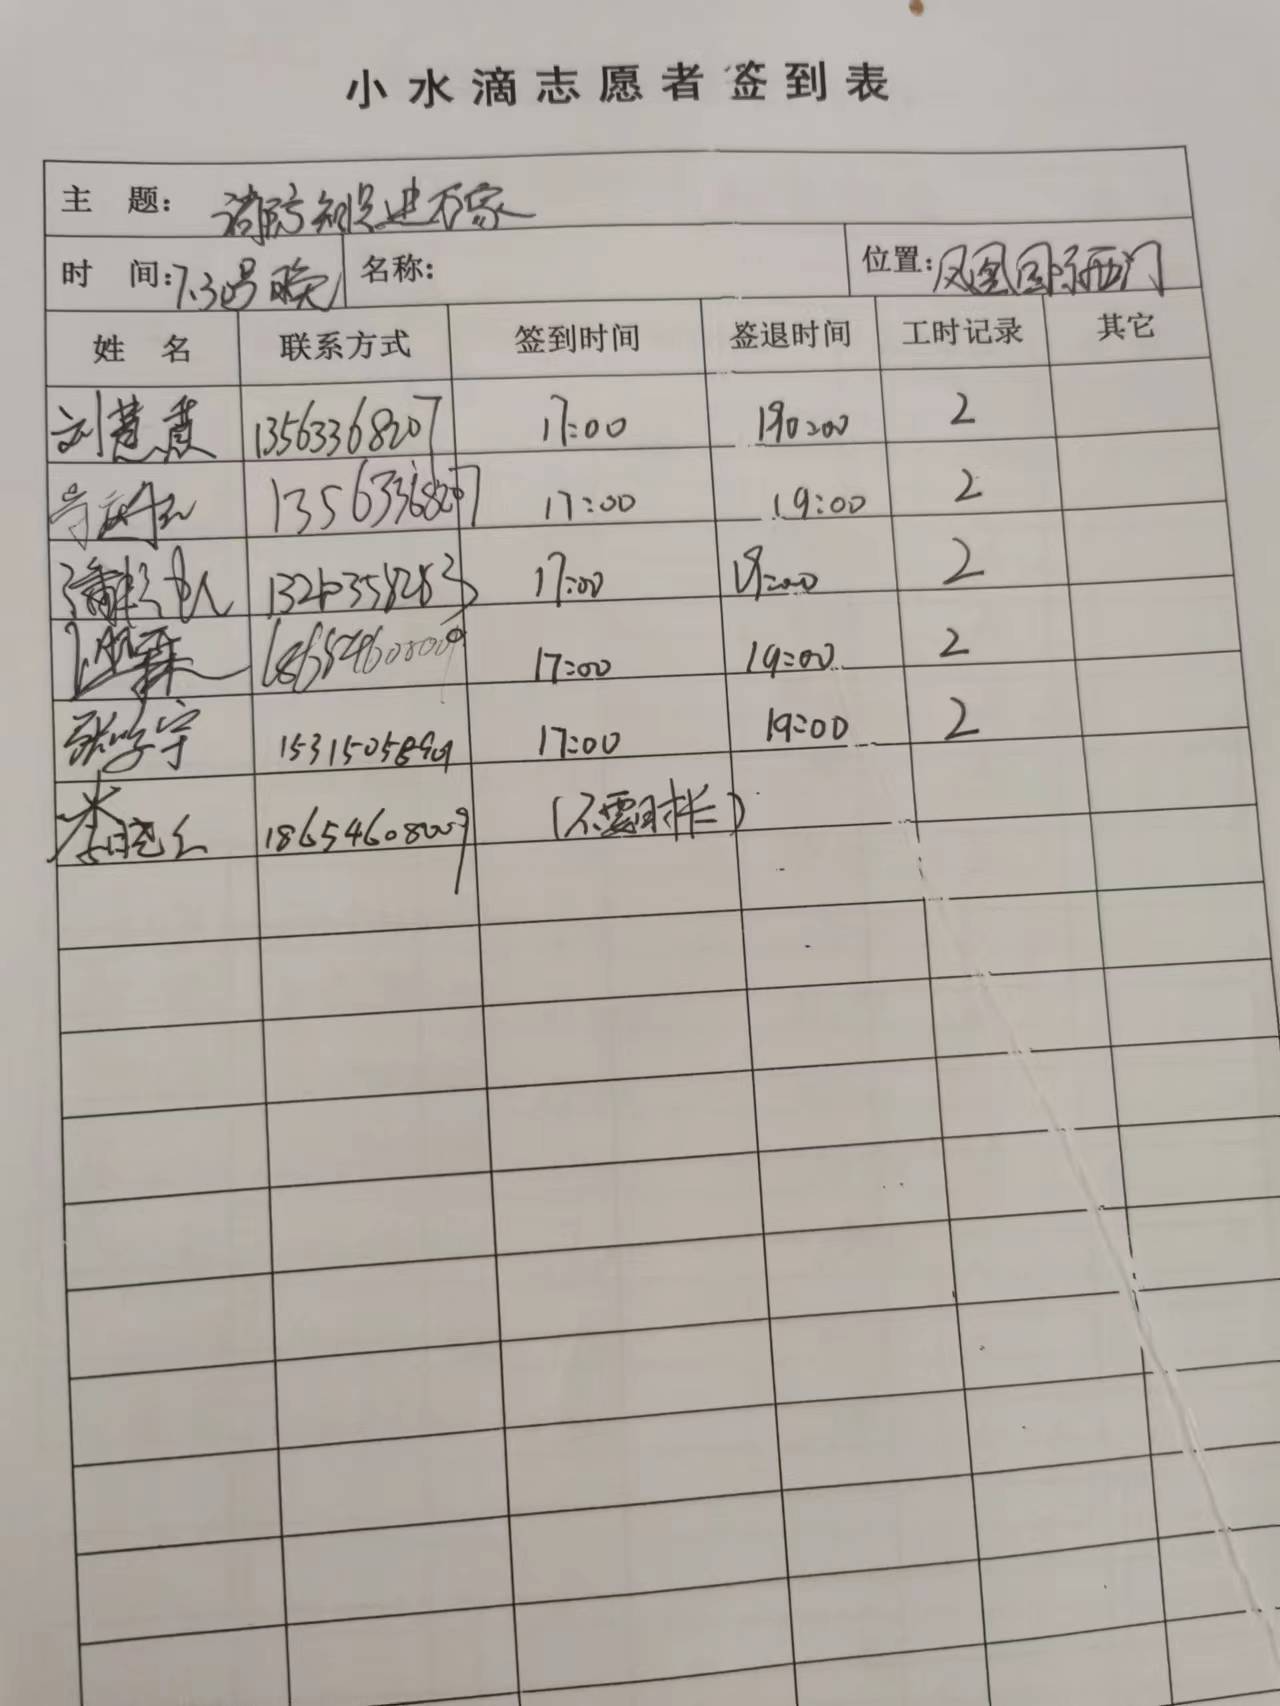 小水滴志愿者签到表
主 题： 消防知识进万家
时 间：7.30号晚 名称： 位置：凤凰国际西门
姓 名 联系方式 签到时间 签退时间 工时记录 其它
刘慧 13563368207 17:00 19:00 2
13563368207 17:00 19:00 2
17:00 19:00 2
17:00 19:00 2
张学宁 17:00 19:00 2
李晓红 18654608009 (不需时长)